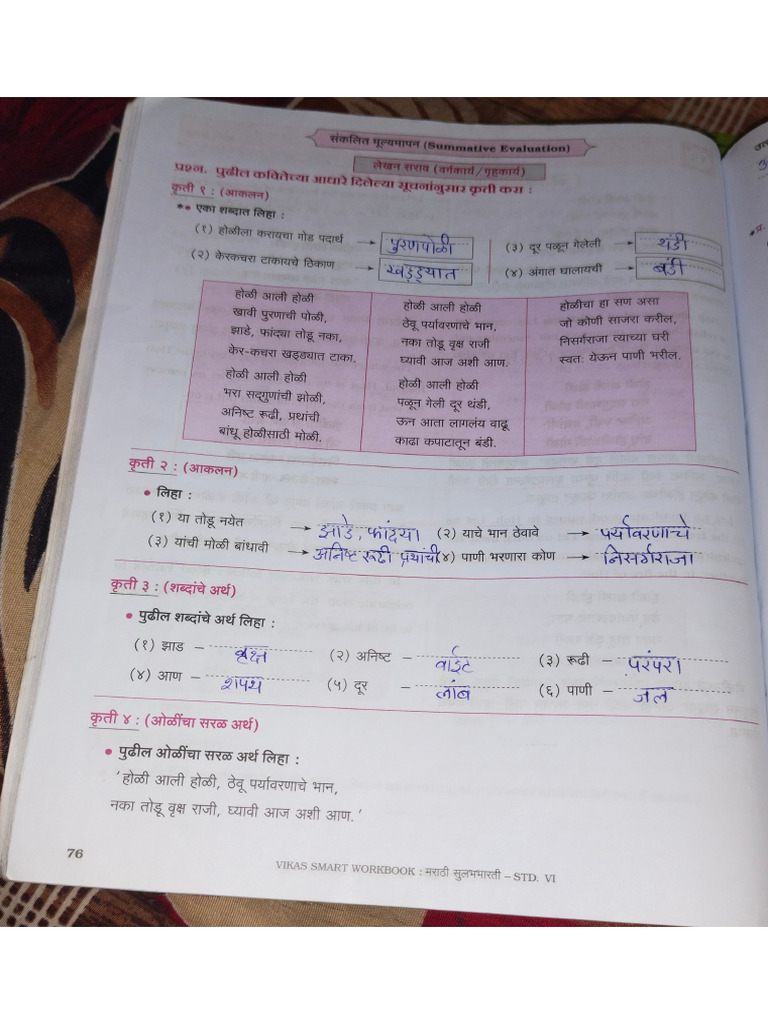 संकलित मूल्यमापन (Summative Evaluation)
लेखन सराव (वर्गकार्य/गृहकार्य)
प्रश्न. पुढील कवितेच्या आधारे दिलेल्या सूचनांनुसार कृती करा :
कृती १ : (आकलन)
** एका शब्दात लिहा :
(१) होळीला करायचा गोड पदार्थ → पुरणपोळी (३) दूर पळून गेलेली → थंडी
(२) केरकचरा टाकायचे ठिकाण → खड्ड्यात (४) अंगात घालायची → बंडी
होळी आली होळी
खावी पुरणाची पोळी,
झाडे, फांद्या तोडू नका,
केर-कचरा खड्ड्यात टाका.
होळी आली होळी
भरा सद्गुणांची झोळी,
अनिष्ट रूढी, प्रथांची
बांधू होळीसाठी मोळी.
होळी आली होळी
ठेवू पर्यावरणाचे भान,
नका तोडू वृक्ष राजी
घ्यावी आज अशी आण.
होळी आली होळी
पळून गेली दूर थंडी,
ऊन आता लागलंय वाढू
काढा कपाटातून बंडी.
होळीचा हा सण असा
जो कोणी साजरा करील,
निसर्गराजा त्याच्या घरी
स्वतः येऊन पाणी भरील.
कृती २ : (आकलन)
• लिहा :
(१) या तोडू नयेत → झाडे, फांद्या (२) याचे भान ठेवावे → पर्यावरणाचे
(३) यांची मोळी बांधावी → अनिष्ट रूढी प्रथांची (४) पाणी भरणारा कोण → निसर्गराजा
कृती ३ : (शब्दांचे अर्थ)
• पुढील शब्दांचे अर्थ लिहा :
(१) झाड – वृक्ष (२) अनिष्ट – वाईट (३) रूढी – परंपरा
(४) आण – शपथ (५) दूर – लांब (६) पाणी – जल
कृती ४ : (ओळींचा सरळ अर्थ)
• पुढील ओळींचा सरळ अर्थ लिहा :
'होळी आली होळी, ठेवू पर्यावरणाचे भान,
नका तोडू वृक्ष राजी, घ्यावी आज अशी आण.'
76
VIKAS SMART WORKBOOK : मराठी सुलभभारती – STD. VI